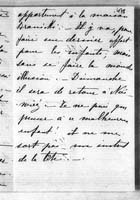 appartement à la maison
Branicki. – Il y va pour
faire une dernière appari-
tion pour les enfants, mais
sans se faire la moindre
illusion. – Dimanche
il sera de retour à
– Je ne puis que
penser à ce malheureux
enfant! et ne me
sort pas un instant
de la tête. –